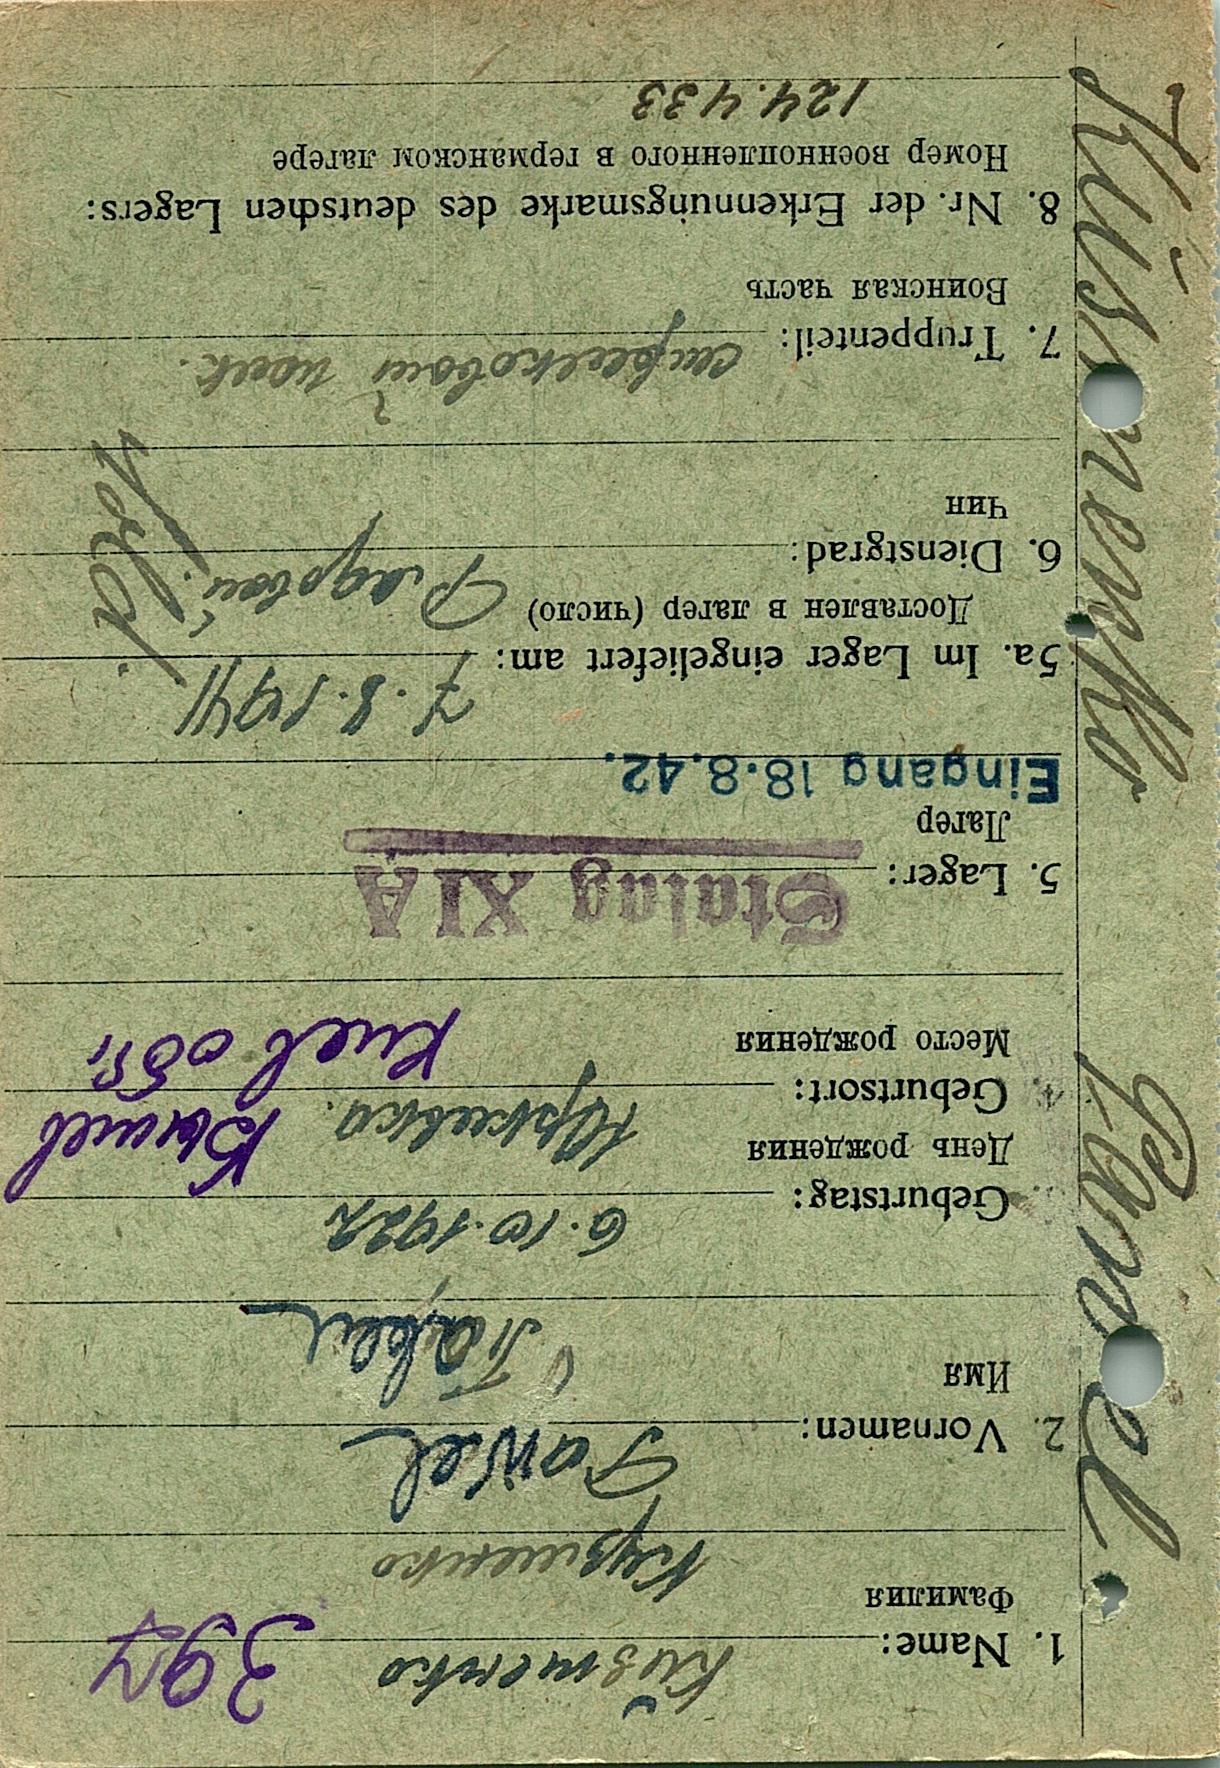 Küsmenko Pawel.
1. Name: Küsmenko
394
Фамилия
Кузменко
2. Vornamen: Pawel
Имя
Павел
Geburtstag: 6.10.1922
День рождения
Geburtsort: Юрківка.
Место рождения
Киев обл
5. Lager: Stalag XIA
Лагер
Eingang 18.8.42.
5a. Im Lager eingeliefert am: 7.8.1941
Доставлен в лагер (число)
6. Dienstgrad: Рядовой
Sold.
Чин
7. Truppenteil: стрелковый полк.
Воинская часть
8. Nr. der Erkennungsmarke des deutschen Lagers:
Номер военнопленного в германском лагере
124.433